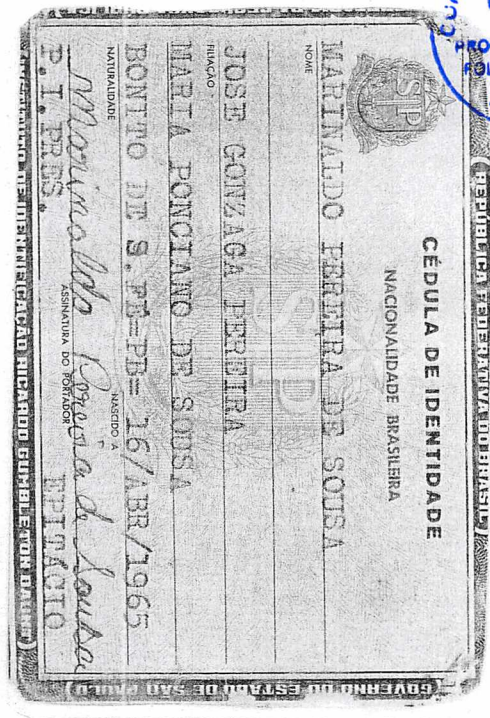 REPÚBLICA FEDERATIVA DO BRASIL
CÉDULA DE IDENTIDADE
NACIONALIDADE BRASILEIRA
NOME
MARINALDO PEREIRA DE SOUSA
FILIAÇÃO
JOSE GONZAGA PEREIRA
MARIA PONCIANO DE SOUSA
NATURALIDADE
NASCIDO A
BONITO DE S.FÉ=PB= 16/ABR/1965
Marinaldo Pereira de Sousa
ASSINATURA DO PORTADOR
P.I.PRES. EPITACIO
GOVERNO DO ESTADO DE SÃO PAULO
INSTITUTO DE IDENTIFICAÇÃO RICARDO GUMBLETON DAUNT